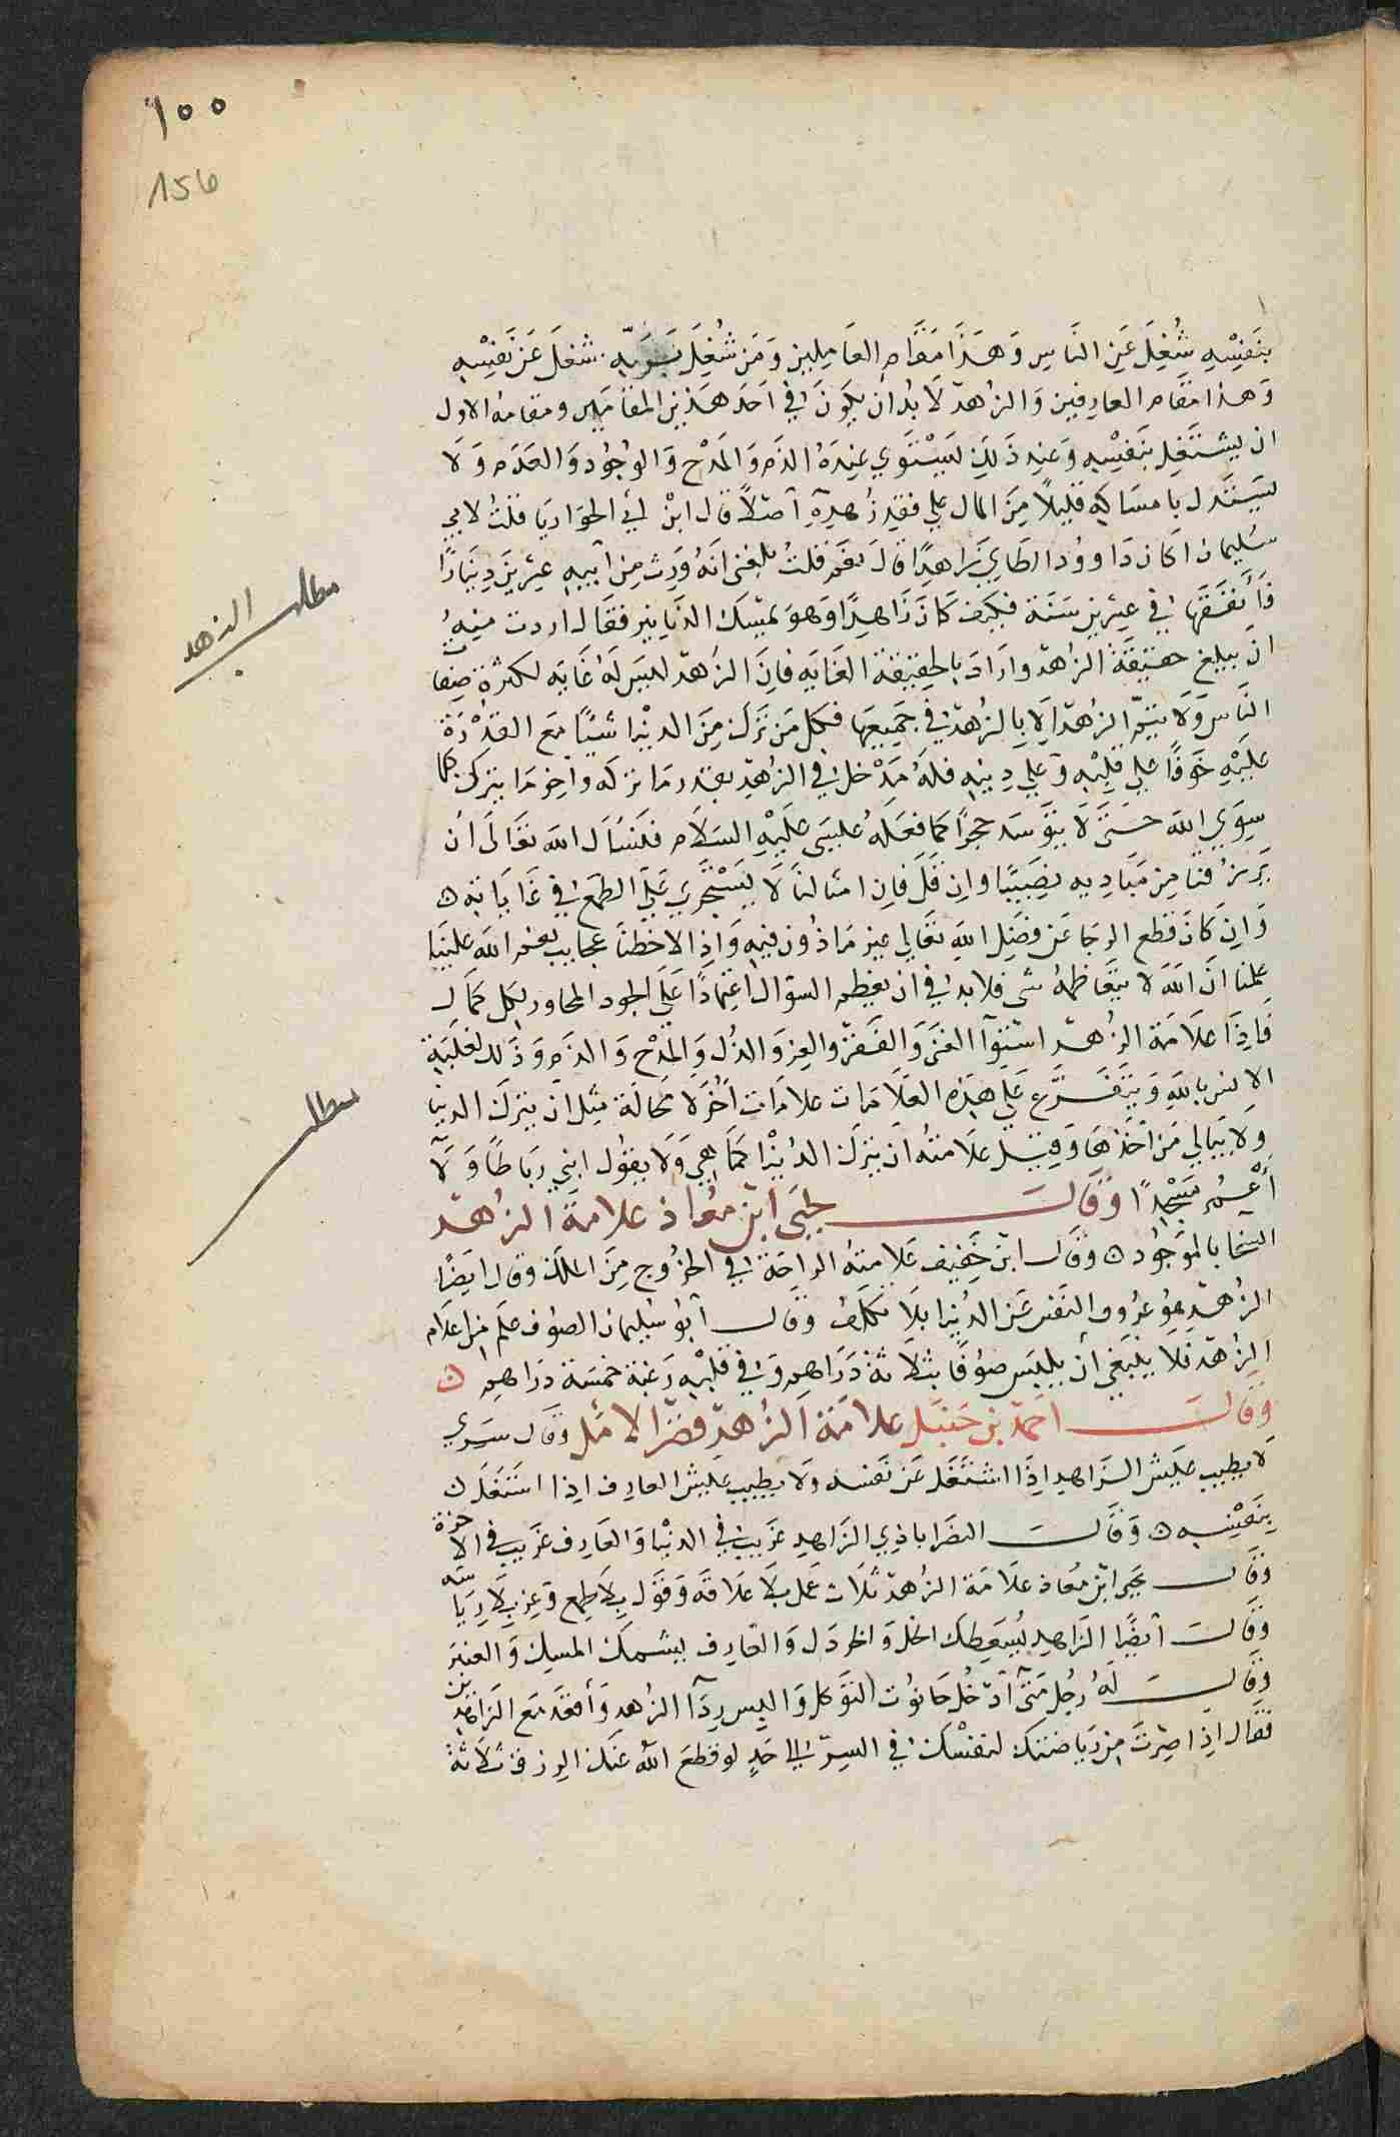 ١٠٠
156
بنفسه شغل عن الناس وهذا مقام العاملين ومن شغل بربه شغل عن نفسه
وهذا مقام العارفين والزاهد لا بد ان يكون في احد هذين المقامين ومقامه الاول
ان يشتغل بنفسه وعند ذلك يستوي عنده الذم والمدح والوجود والعدم ولا
يستدل بامساكه قليلا من المال على فقد زهده اصلا قال ابن ابي الحواريا قلت لابي
سليمان اكان داوود الطاي زاهدا قال نعم قلت بلغني انه ورث من ابيه عشرين دينارا
فأنفقها في عشرين سنة فكيف كان زاهدا وهو يمسك الدنانير فقال اردت منه
ان يبلغ حقيقة الزهد واراد بالحقيقة الغايه فان الزهد ليس له غايه لكثرة صفات
النفس ولا يتم الزهد الا بالزهد في جميعها فكل من ترك من الدنيا شيئا مع القدرة
عليه خوفا على قلبه وعلى دينه فله مدخل في الزهد بقدر ما تركه واخر ما يترك كلما
سوي الله حتى لا يتوسد حجرا كما فعله عيسى عليه السلام فنسأل الله تعالى أن
يرزقنا من مباديه نصيبا وان قل فان امثالنا لا يستجري على الطمع في غاياته ه
وان كان قطع الرجا عن فضل الله تعالى غير ماذون فيه واذا لاحظنا عجايب نعم الله علينا
علمنا ان الله لا يتعاظمه شي فلا بد في ان نعظم السؤال اعتمادا على الجود المجاور لكل كمال
فاذا علامة الزهد استوآ الغنى والفقر والعز والذل والمدح والذم وذلك لغلبة
الانس بالله ويتفرع على هذه العلامات علامات اخر لا محالة مثل ان يترك الدنيا
ولا يبالي من اخذها وقيل علامته ان يترك الدنيا كما هي ولا يقول ابني رباطا ولا
أعمر مسجدا وقال يحيى ابن معاذ علامة الزهد
السخا بالموجود ه وقال ابن خفيف علامته الراحة في الخروج من الملك وقال ايضا
الزهد هو عزوف النفس عن الدنيا بلا تكلف وقال أبو سليمان الصوف علم من اعلام
الزهد فلا ينبغي أن يلبس صوفا بثلاثة دراهم وفي قلبه رغبة خمسة دراهم ه
وقال احمد بن حنبل علامة الزهد قصر الامل وقال سري
لا يطيب عيش الزاهد اذا اشتغل عن نفسه ولا يطيب عيش العارف اذا اشتغل
بنفسه ه وقال النصراباذي الزاهد غريب في الدنيا والعارف غريب في الاخرة
وقال يحيى ابن معاذ علامة الزهد ثلاث عمل بلا علاقه وقول بلا طمع وعز بلا رياسه
وقال ايضا الزاهد يسعطك الخل والخردل والعارف يشمك المسك والعنبر
وقال له رجل متى ادخل حانوت التوكل والبس ردآ الزهد وأقعد مع الزاهدين
فقال اذا صرت من رياضتك لنفسك في السر الى حد لو قطع الله عنك الرزق ثلاثة
مطلب الزهد
مطلب